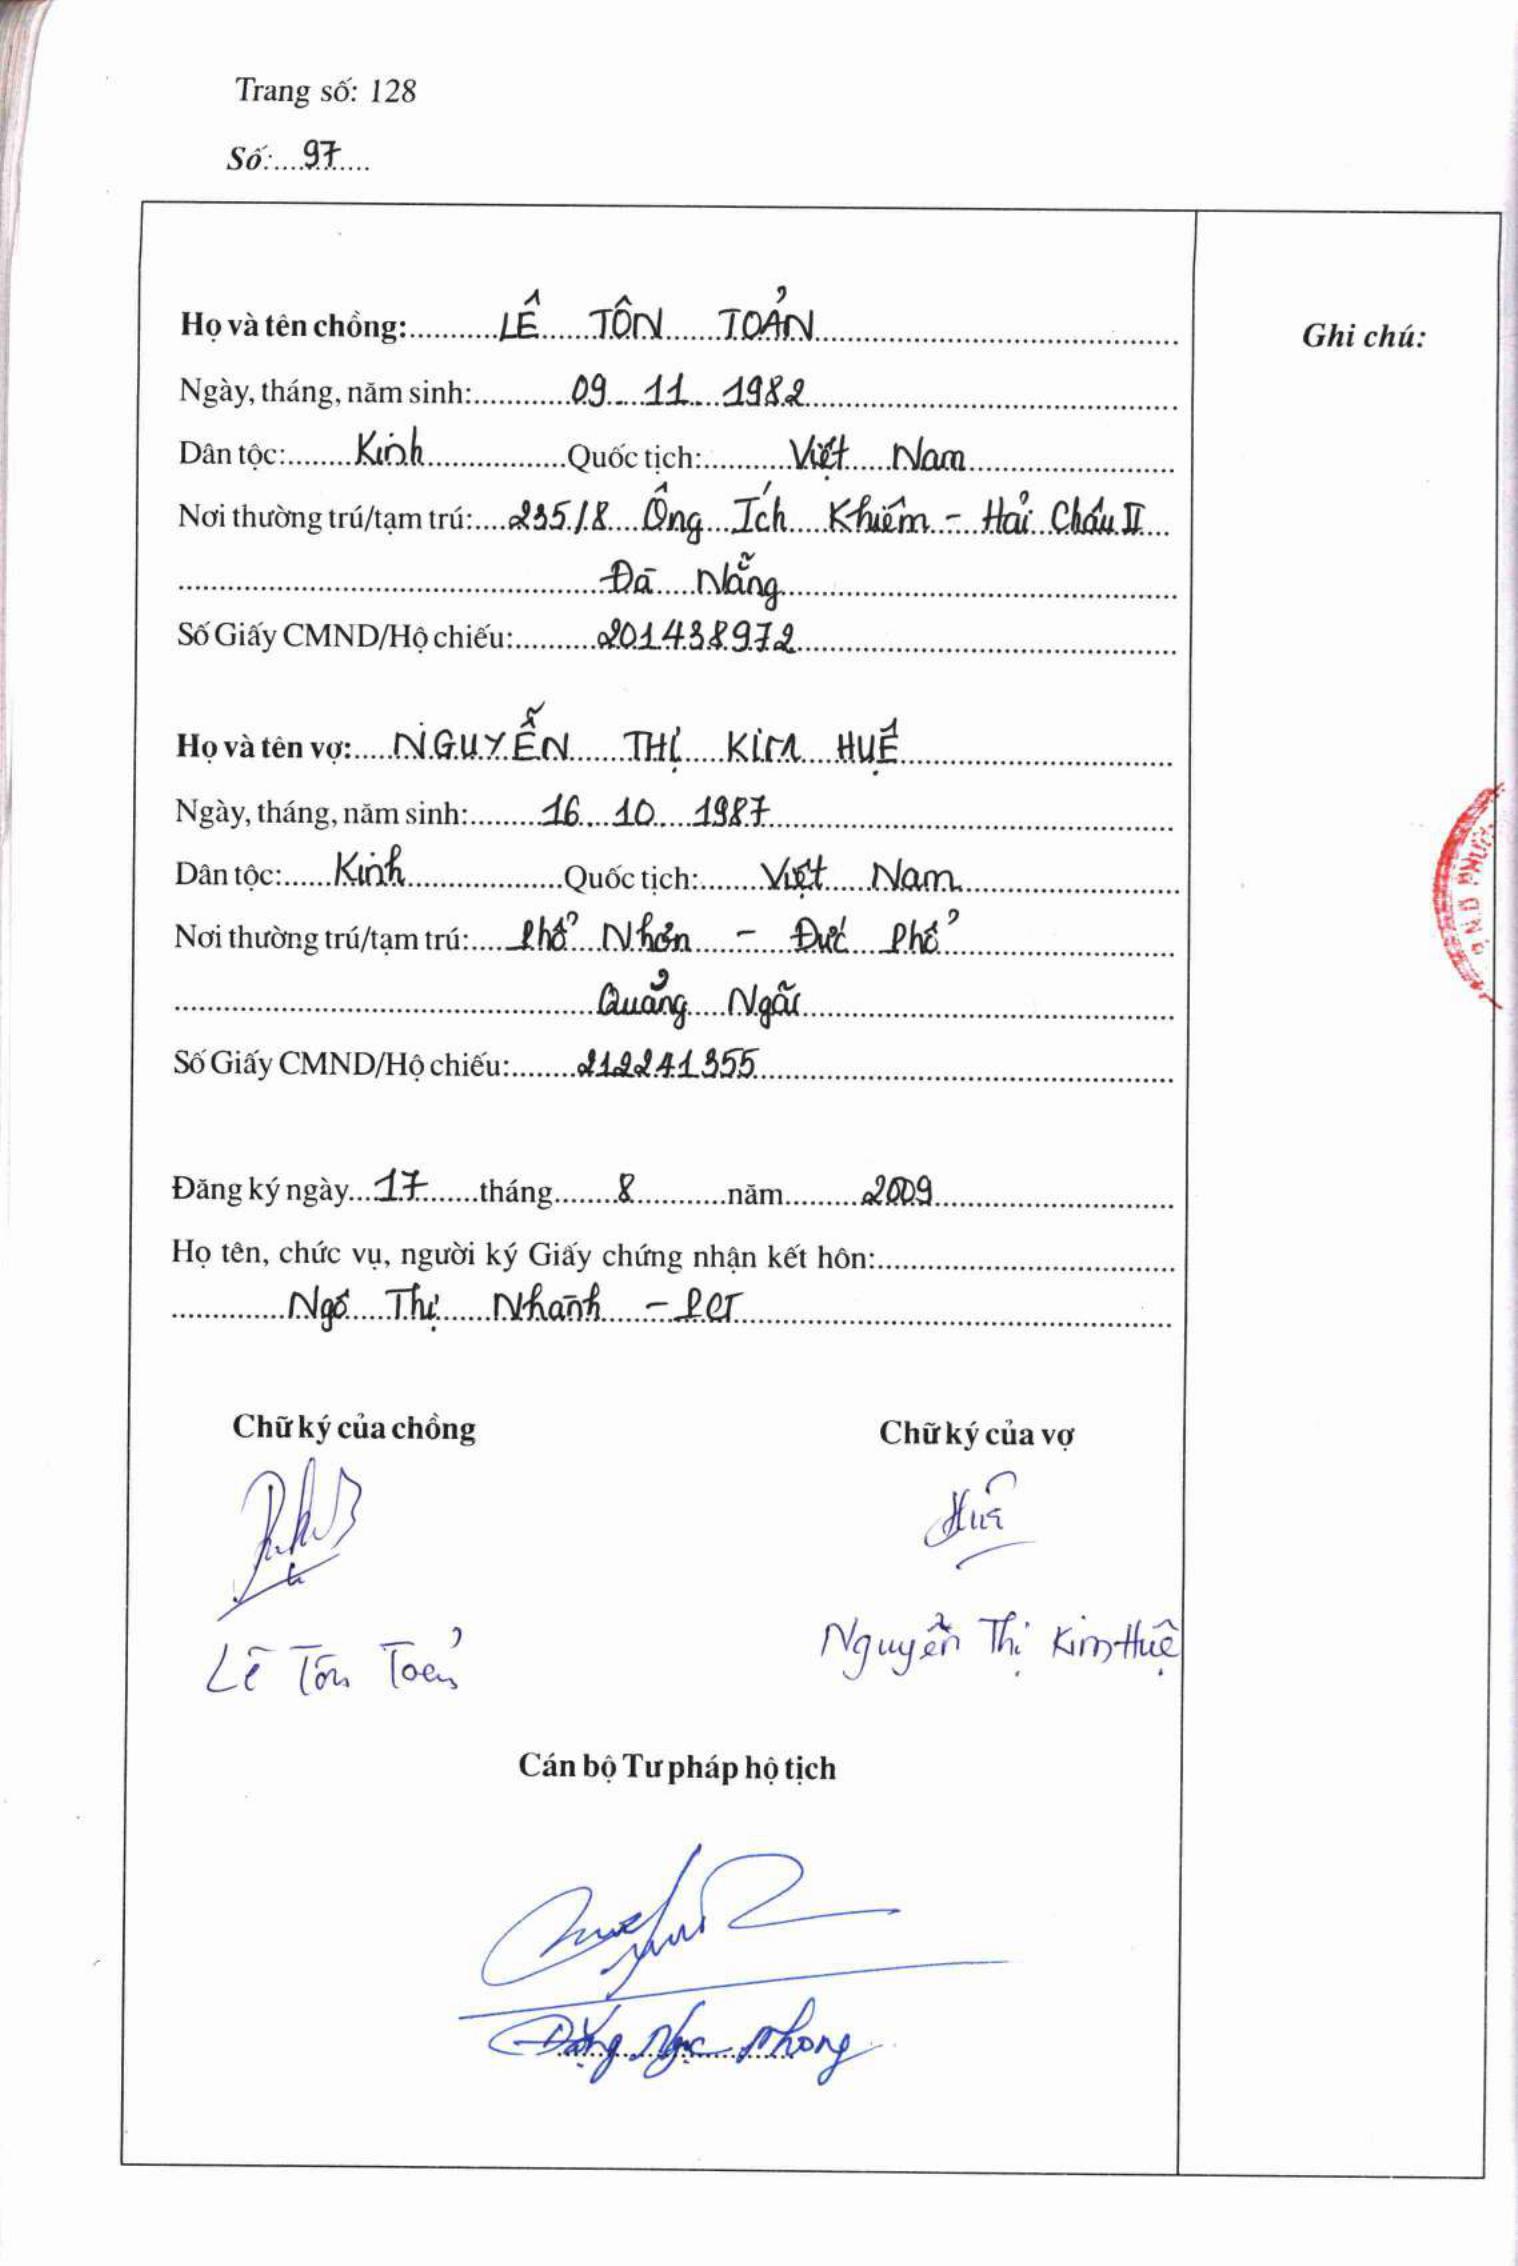 Trang số: 128
Số: 97
Họ và tên chồng: LÊ TÔN TOẢN
Ghi chú:
Ngày, tháng, năm sinh: 09 11 1982
Dân tộc: Kinh Quốc tịch: Việt Nam
Nơi thường trú/tạm trú: 235/8 Ông Ích Khiêm - Hải Châu II
Đà Nẵng
Số Giấy CMND/Hộ chiếu: 201438972
Họ và tên vợ: NGUYỄN THỊ KIM HUỆ
Ngày, tháng, năm sinh: 16 10 1987
Dân tộc: Kinh Quốc tịch: Việt Nam
Nơi thường trú/tạm trú: Phổ Nhơn - Đức Phổ
Quảng Ngãi
Số Giấy CMND/Hộ chiếu: 212241355
Đăng ký ngày 17 tháng 8 năm 2009
Họ tên, chức vụ, người ký Giấy chứng nhận kết hôn:
Ngô Thị Nhành - PCT
Chữ ký của chồng Chữ ký của vợ
Huệ
Lê Tôn Toản Nguyễn Thị Kim Huệ
Cán bộ Tư pháp hộ tịch
Đặng Ngọc Phong